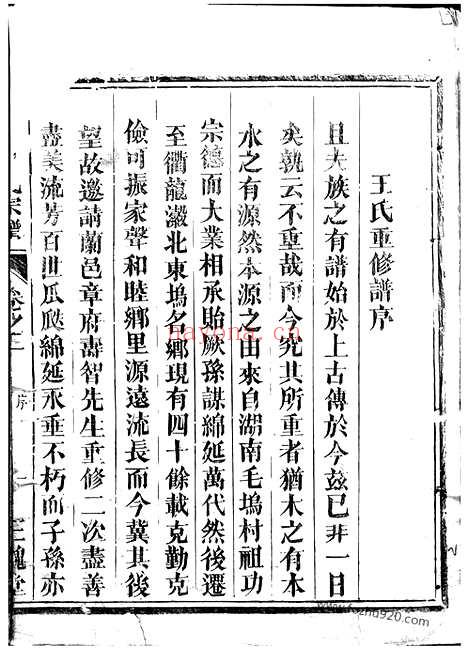 王氏重修譜序
且夫族之有譜始於上古傳於今茲已非一日
矣孰云不重哉而今究其所重者猶木之有本
水之有源然本源之由來自湖南毛塢村祖功
宗德而大業相承貽厥孫謀綿延萬代然後遷
至衢龍瀫北東塢名鄉現有四十餘載克勤克
儉可振家聲和睦鄉里源遠流長而今冀其後
望故邀請蘭邑章府壽智先生重修二次盡善
盡美流芳百世瓜瓞綿延永垂不朽而子孫亦
氏宗譜
卷之一
序
一
三槐堂
nayona.cn
f.zhu920.com